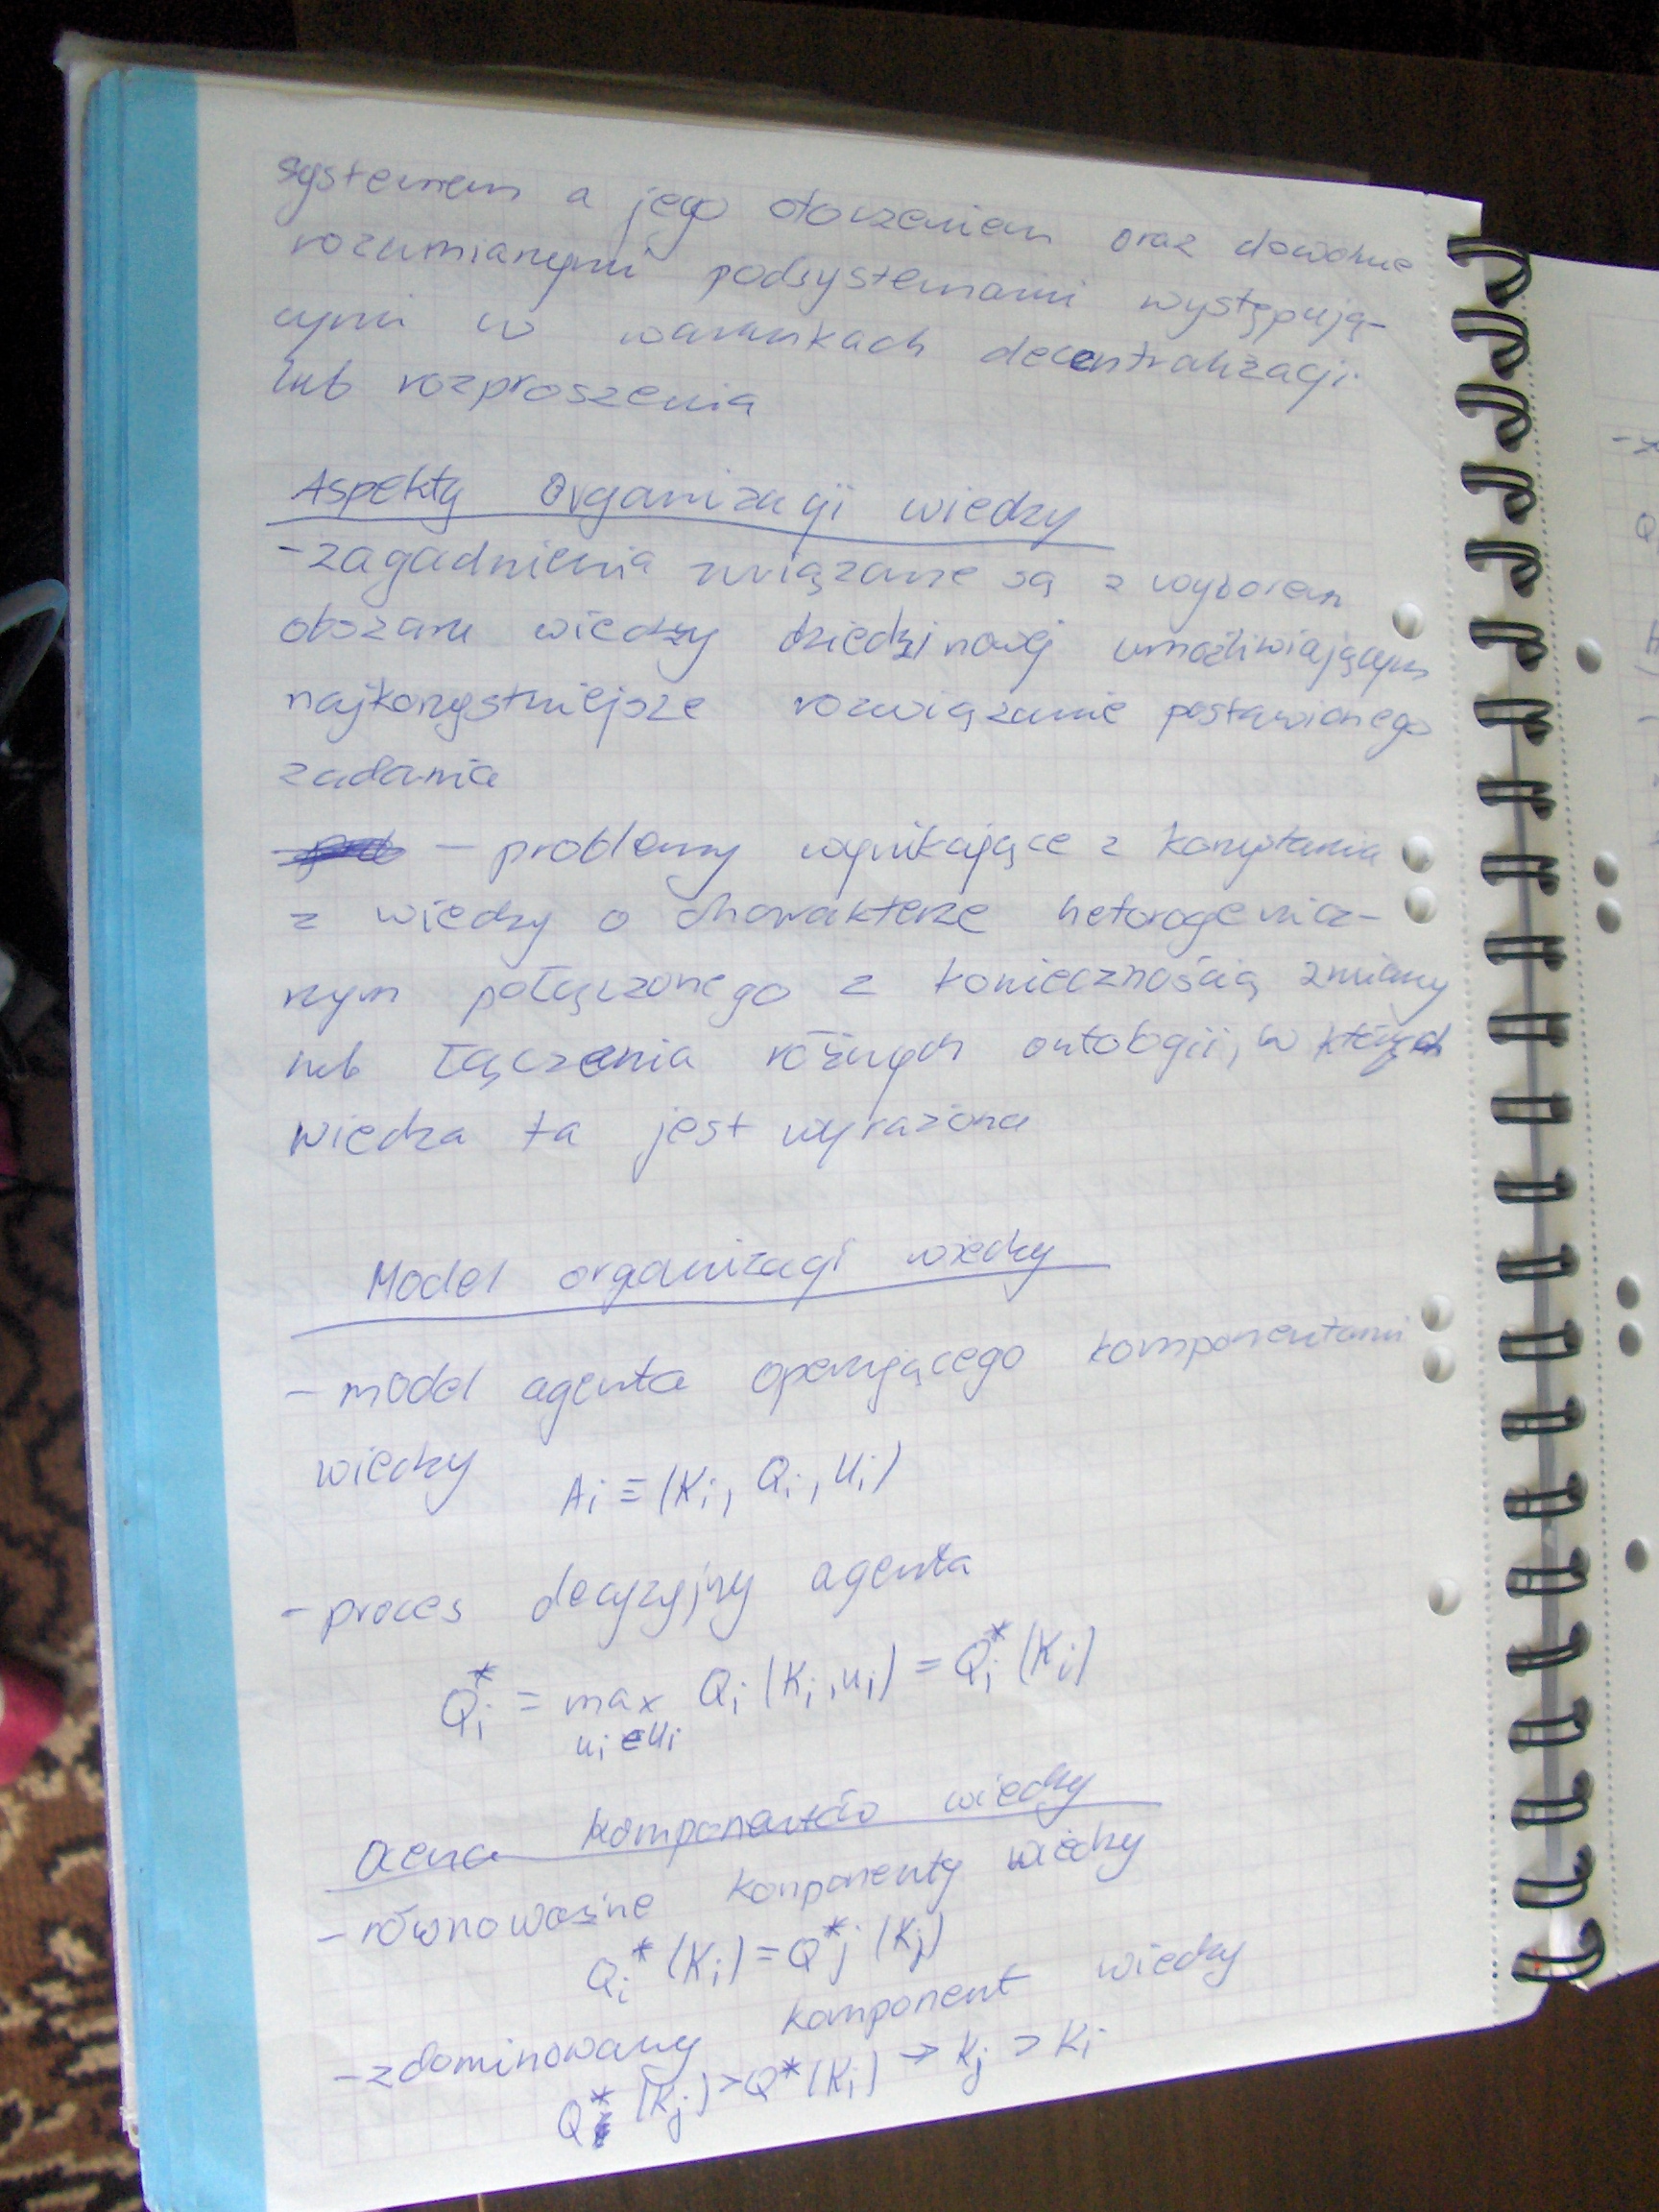 systemem a jego otoczeniem oraz dowolnie
rozumianymi podsystemami występują-
cymi w warunkach decentralizacji
lub rozproszenia
Aspekty Organizacji wiedzy
- zagadnienia związane są z wyborem
obszaru wiedzy dziedzinowej umożliwiającym
najkorzystniejsze rozwiązanie postawionego
zadania
- problemy wynikające z korzystania
z wiedzy o charakterze heterogenicz-
nym połączonego z koniecznością zmiany
lub łączenia różnych ontologii, w których
wiedza ta jest wyrażona
Model organizacji wiedzy
- model agenta operującego komponentami
wiedzy Ai ≡ (Ki, Qi, Ui)
- proces decyzyjny agenta
Qi* = max Qi (Ki, ui) = Qi* (Ki)
ui ∈ Ui
Ocena komponentów wiedzy
- równoważne komponenty wiedzy
Qi* (Ki) = Q*j (Kj)
- zdominowany komponent wiedzy
Q* (Kj) > Q* (Ki) → Kj > Ki